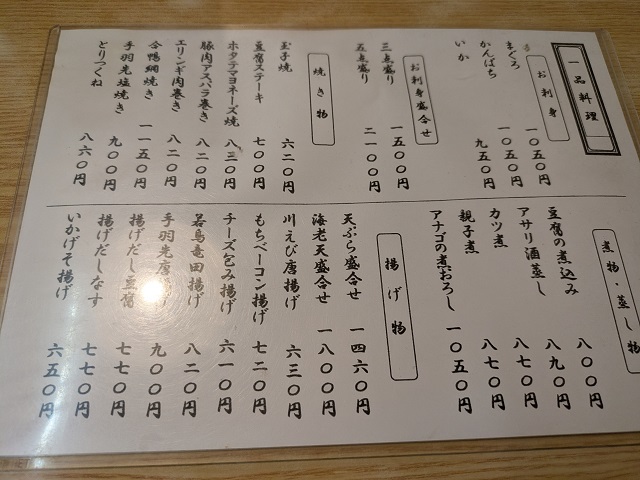 一品料理
お刺身
まぐろ 一〇五〇円
かんぱち 一〇五〇円
いか 九五〇円
お刺身盛合せ
三点盛り 一五〇〇円
五点盛り 二一〇〇円
焼き物
玉子焼 六二〇円
豆腐ステーキ 七〇〇円
ホタテマヨネーズ焼 八三〇円
豚肉アスパラ巻き 八二〇円
エリンギ肉巻き 八二〇円
合鴨網焼き 一一五〇円
手羽先塩焼き 九〇〇円
とりつくね 八六〇円
煮物・蒸し物
豆腐の煮込み 八〇〇円
アサリ酒蒸し 八九〇円
カツ煮 八七〇円
親子煮 八七〇円
アナゴの煮おろし 一〇五〇円
揚げ物
天ぷら盛合せ 一四六〇円
海老天盛合せ 一八〇〇円
川えび唐揚げ 六三〇円
もちベーコン揚げ 七二〇円
チーズ包み揚げ 六一〇円
若鳥竜田揚げ 八二〇円
手羽先唐揚げ 九〇〇円
揚げだし豆腐 七七〇円
揚げだしなす 七七〇円
いかげそ揚げ 六五〇円